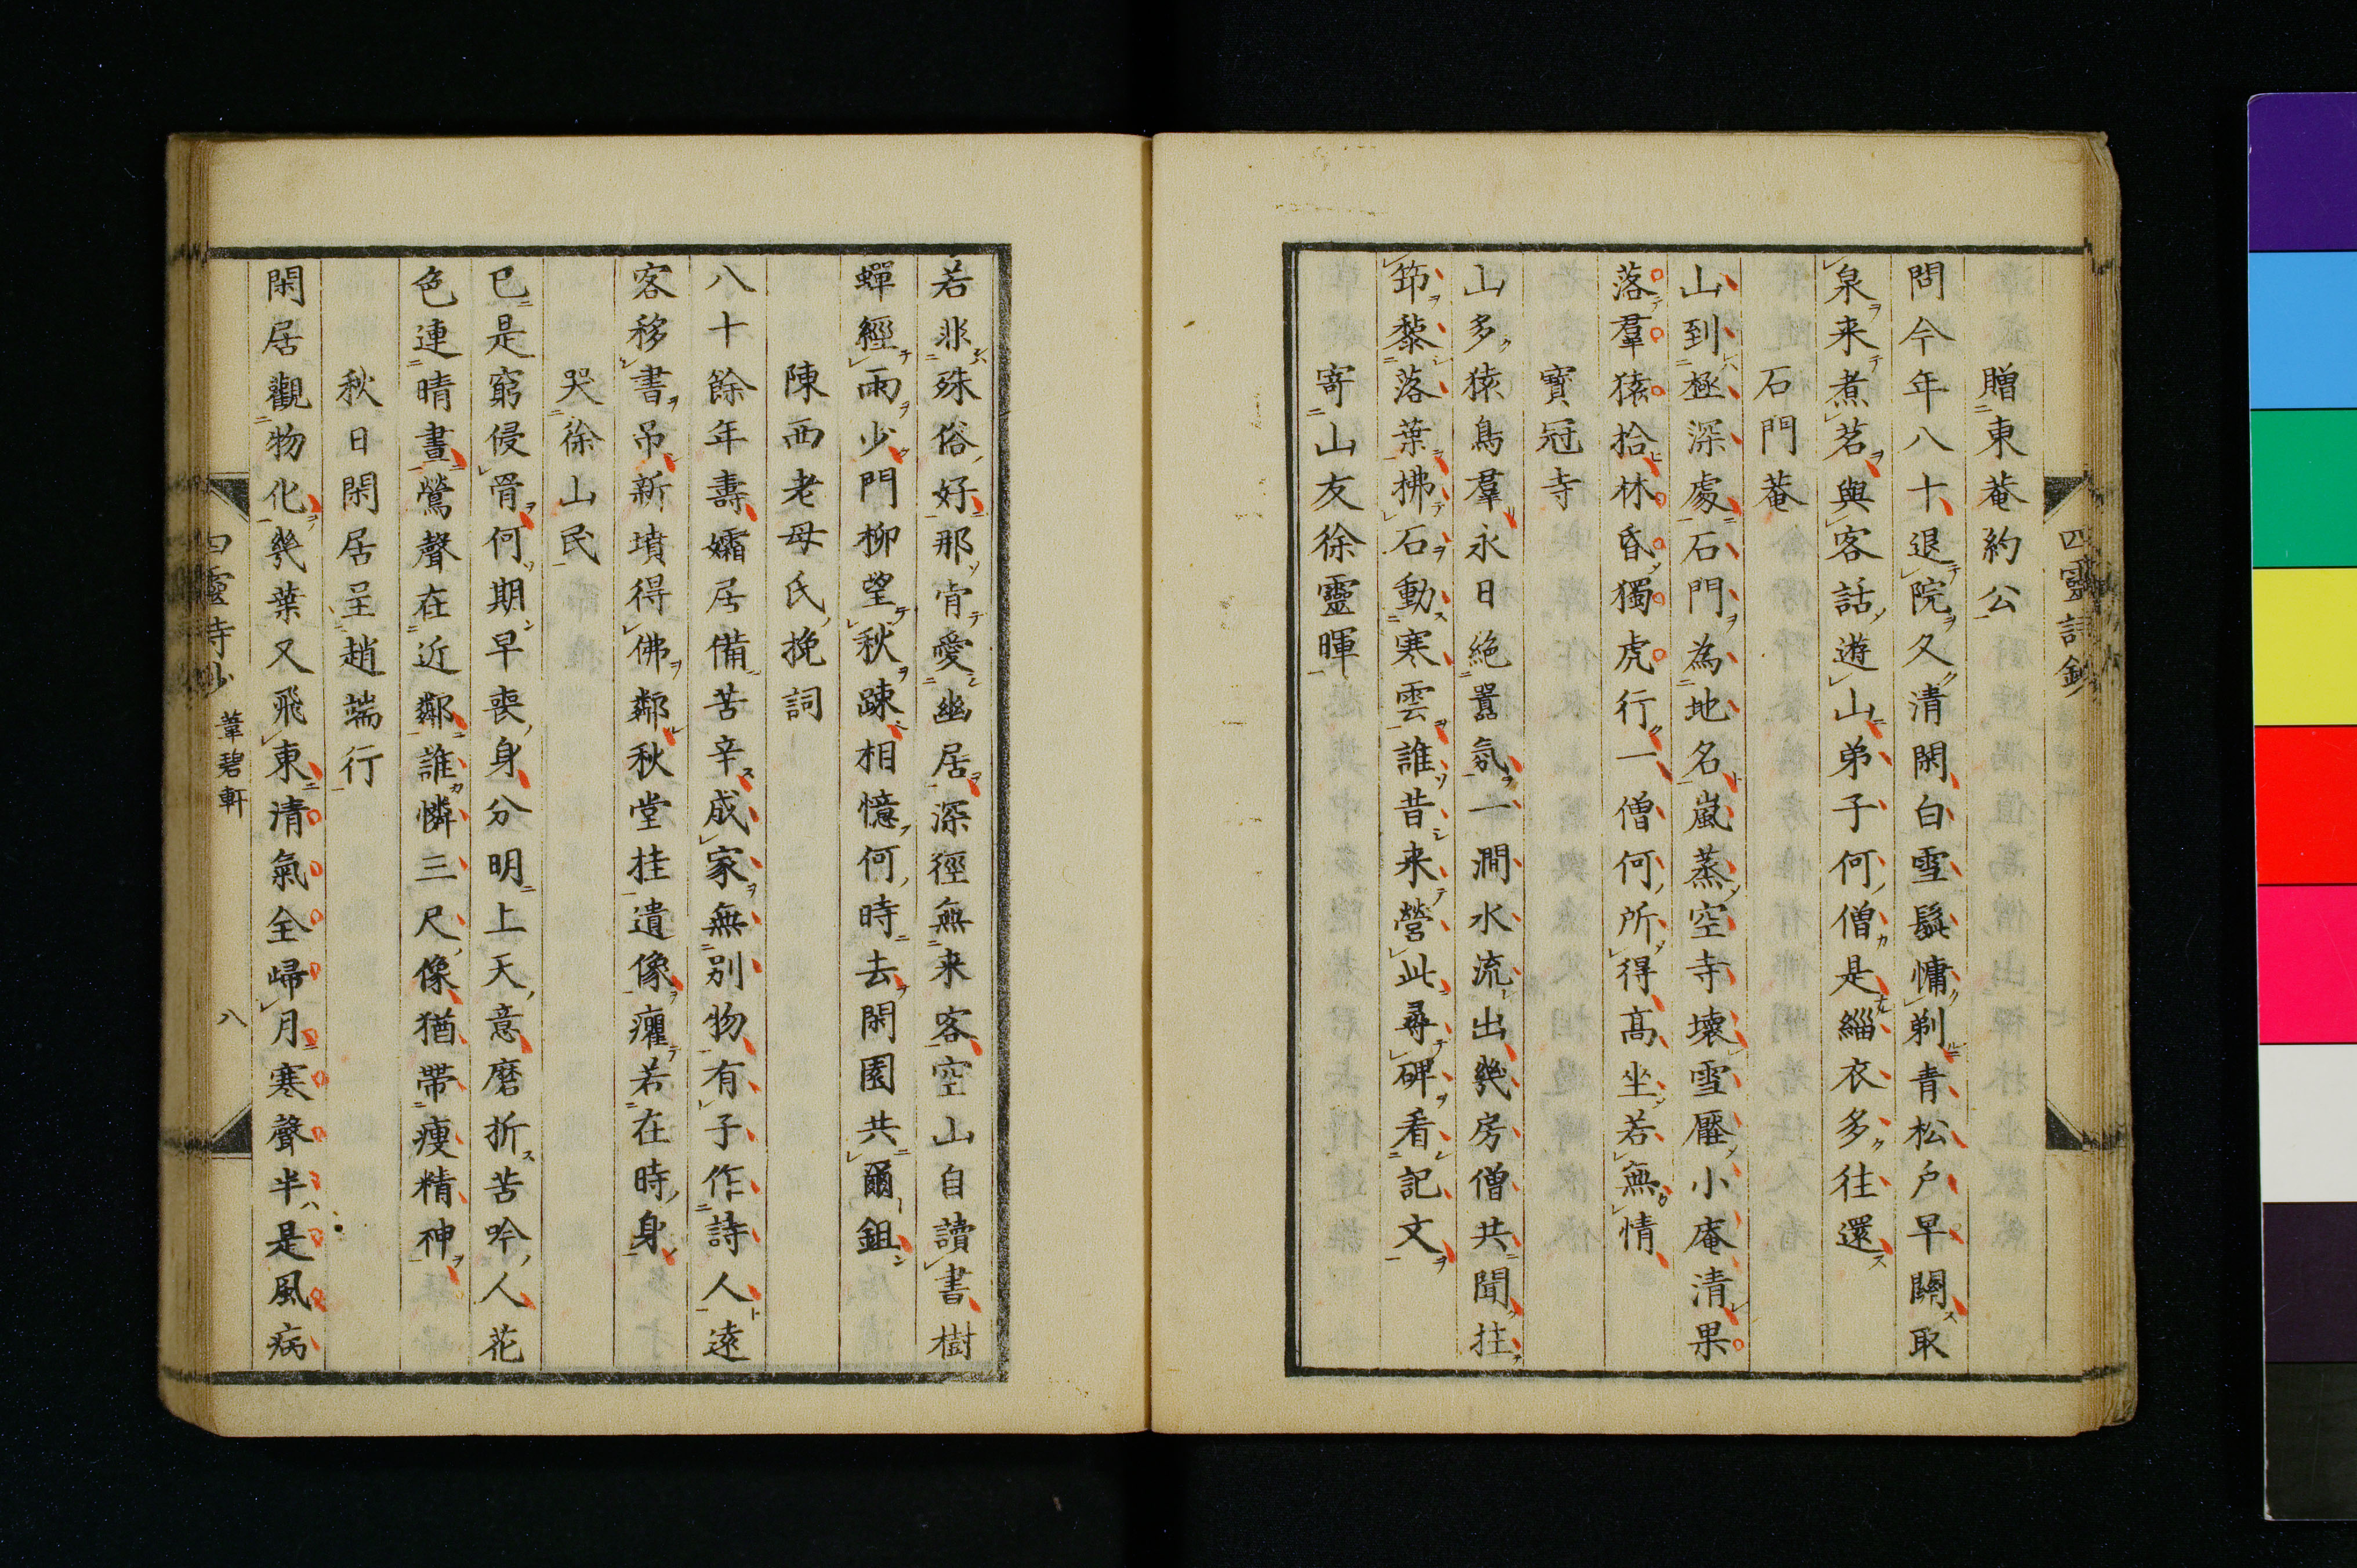 四靈詩鈔
贈東菴約公
問今年八十退院久清閑白雪髮慵剃青松户早關取
泉来煮茗與客話遊山弟子何僧是緇衣多往還
石門菴
山到極深處石門為地名嵐蒸空寺壊雪壓小庵清果
落羣猿拾林昏獨虎行一僧何所得髙坐若無情
寳冠寺
山多猿鳥羣永日絶囂氛一澗水流出幾房僧共聞拄
笻黎落葉拂石動寒雲誰昔来營此尋碑看記文
寄山友徐靈暉
若非殊俗好那肯愛幽居深徑無来客空山自讀書樹
蟬經雨少門柳望秋踈相憶何時去閑園共爾鉏
陳西老母氏挽詞
八十餘年壽孀居備苦辛成家無别物有子作詩人遠
客移書吊新墳得佛鄰秋堂挂遺像癯若在時身
哭徐山民
已是窮侵骨何期早喪身分明上天意磨折苦吟人花
色連晴晝鶯聲在近鄰誰憐三尺像猶帶瘦精神
秋日閑居呈趙端行
閑居觀物化幾葉又飛東清氣全歸月寒聲半是風病
四靈詩鈔 葦碧軒 八